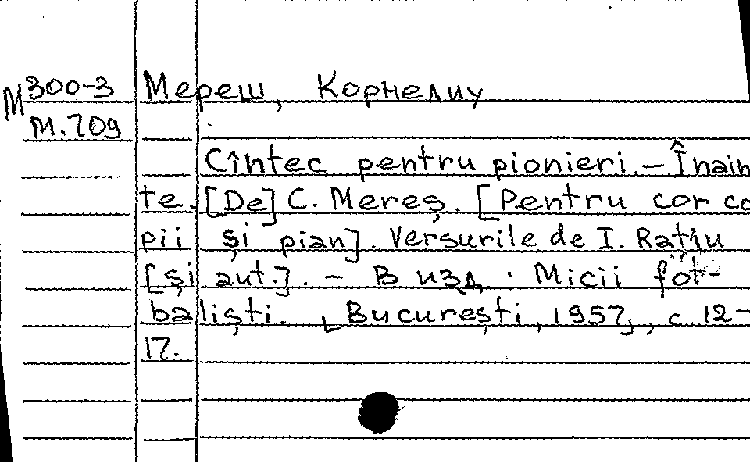 М300-3 Мереш, Корнелиу
М.709
Cîntec pentru pionieri. — Înain
te. [De] C. Mereş. [Pentru cor co
pii şi pian]. Versurile de I. Raţiu
[şi aut.]. — В изд.: Micii fot-
balişti. [Bucureşti, 1957], с. 12-
17.